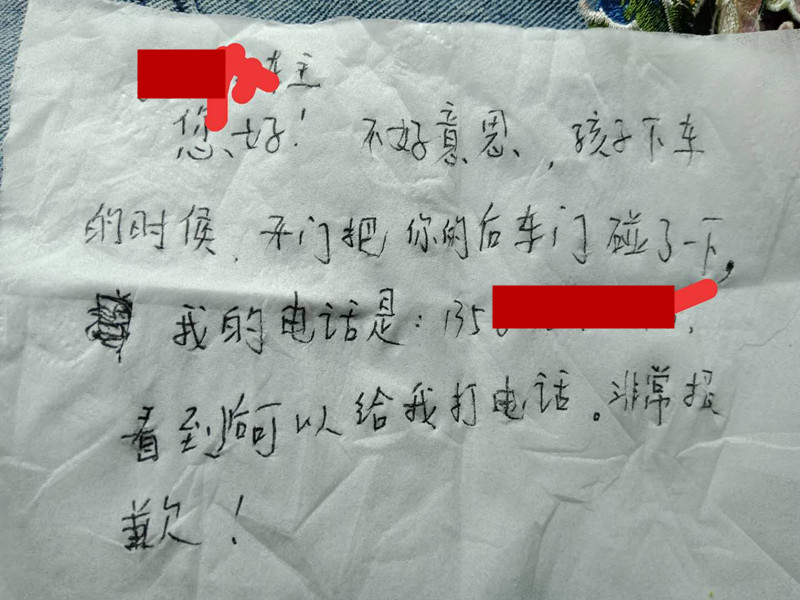 车主
您好！ 不好意思，孩子下车
的时候，开门把你的后车门碰了一下，
我的电话是：135
看到后可以给我打电话。非常抱
歉！